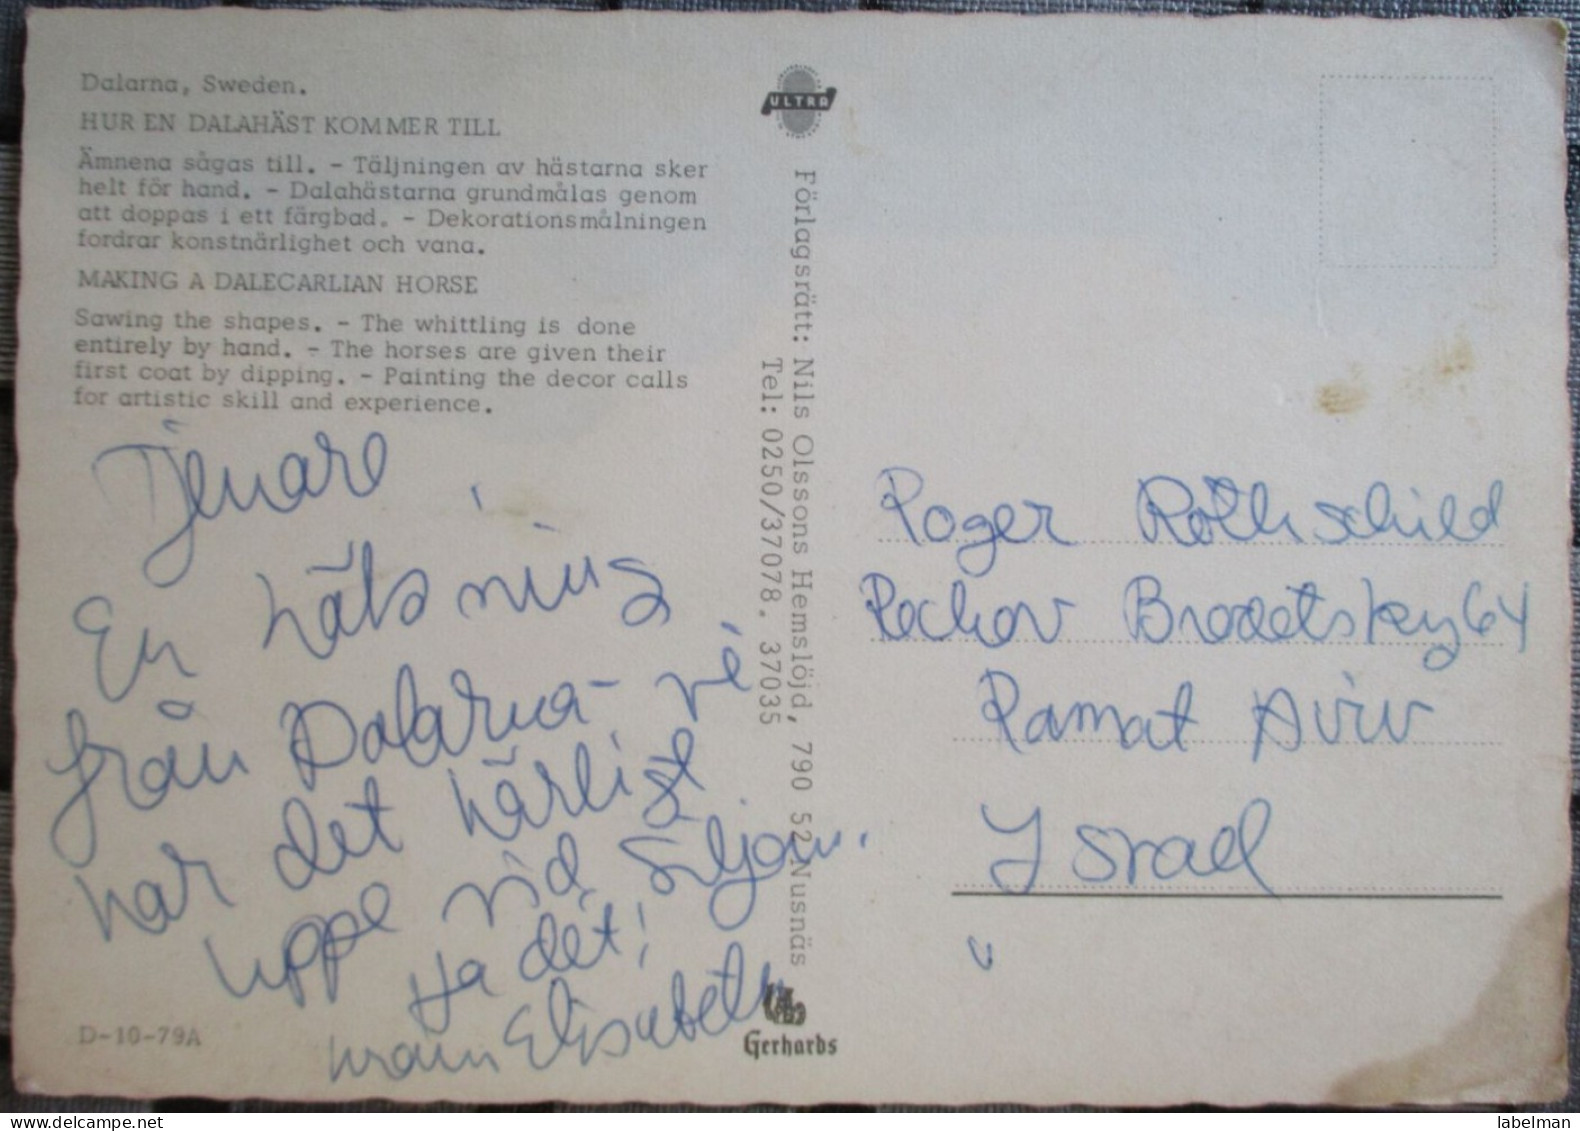 Dalarna, Sweden.
HUR EN DALAHÄST KOMMER TILL
Ämnena sågas till. - Täljningen av hästarna sker
helt för hand. - Dalahästarna grundmålas genom
att doppas i ett färgbad. - Dekorationsmålningen
fordrar konstnärlighet och vana.
MAKING A DALECARLIAN HORSE
Sawing the shapes. - The whittling is done
entirely by hand. - The horses are given their
first coat by dipping. - Painting the decor calls
for artistic skill and experience.
Tjenare
En hälsning
från Dalarna - vi
har det härligt
uppe vid Siljan.
Ha det!
Elisabeth
D-10-79A
ULTRA
Förlagsrätt: Nils Olssons Hemslöjd, 790 52 Nusnäs
Tel: 0250/37078. 37035
Gerhards
Roger Rothschild
Rechov Brodetsky 64
Ramat Aviv
Israel
labelman